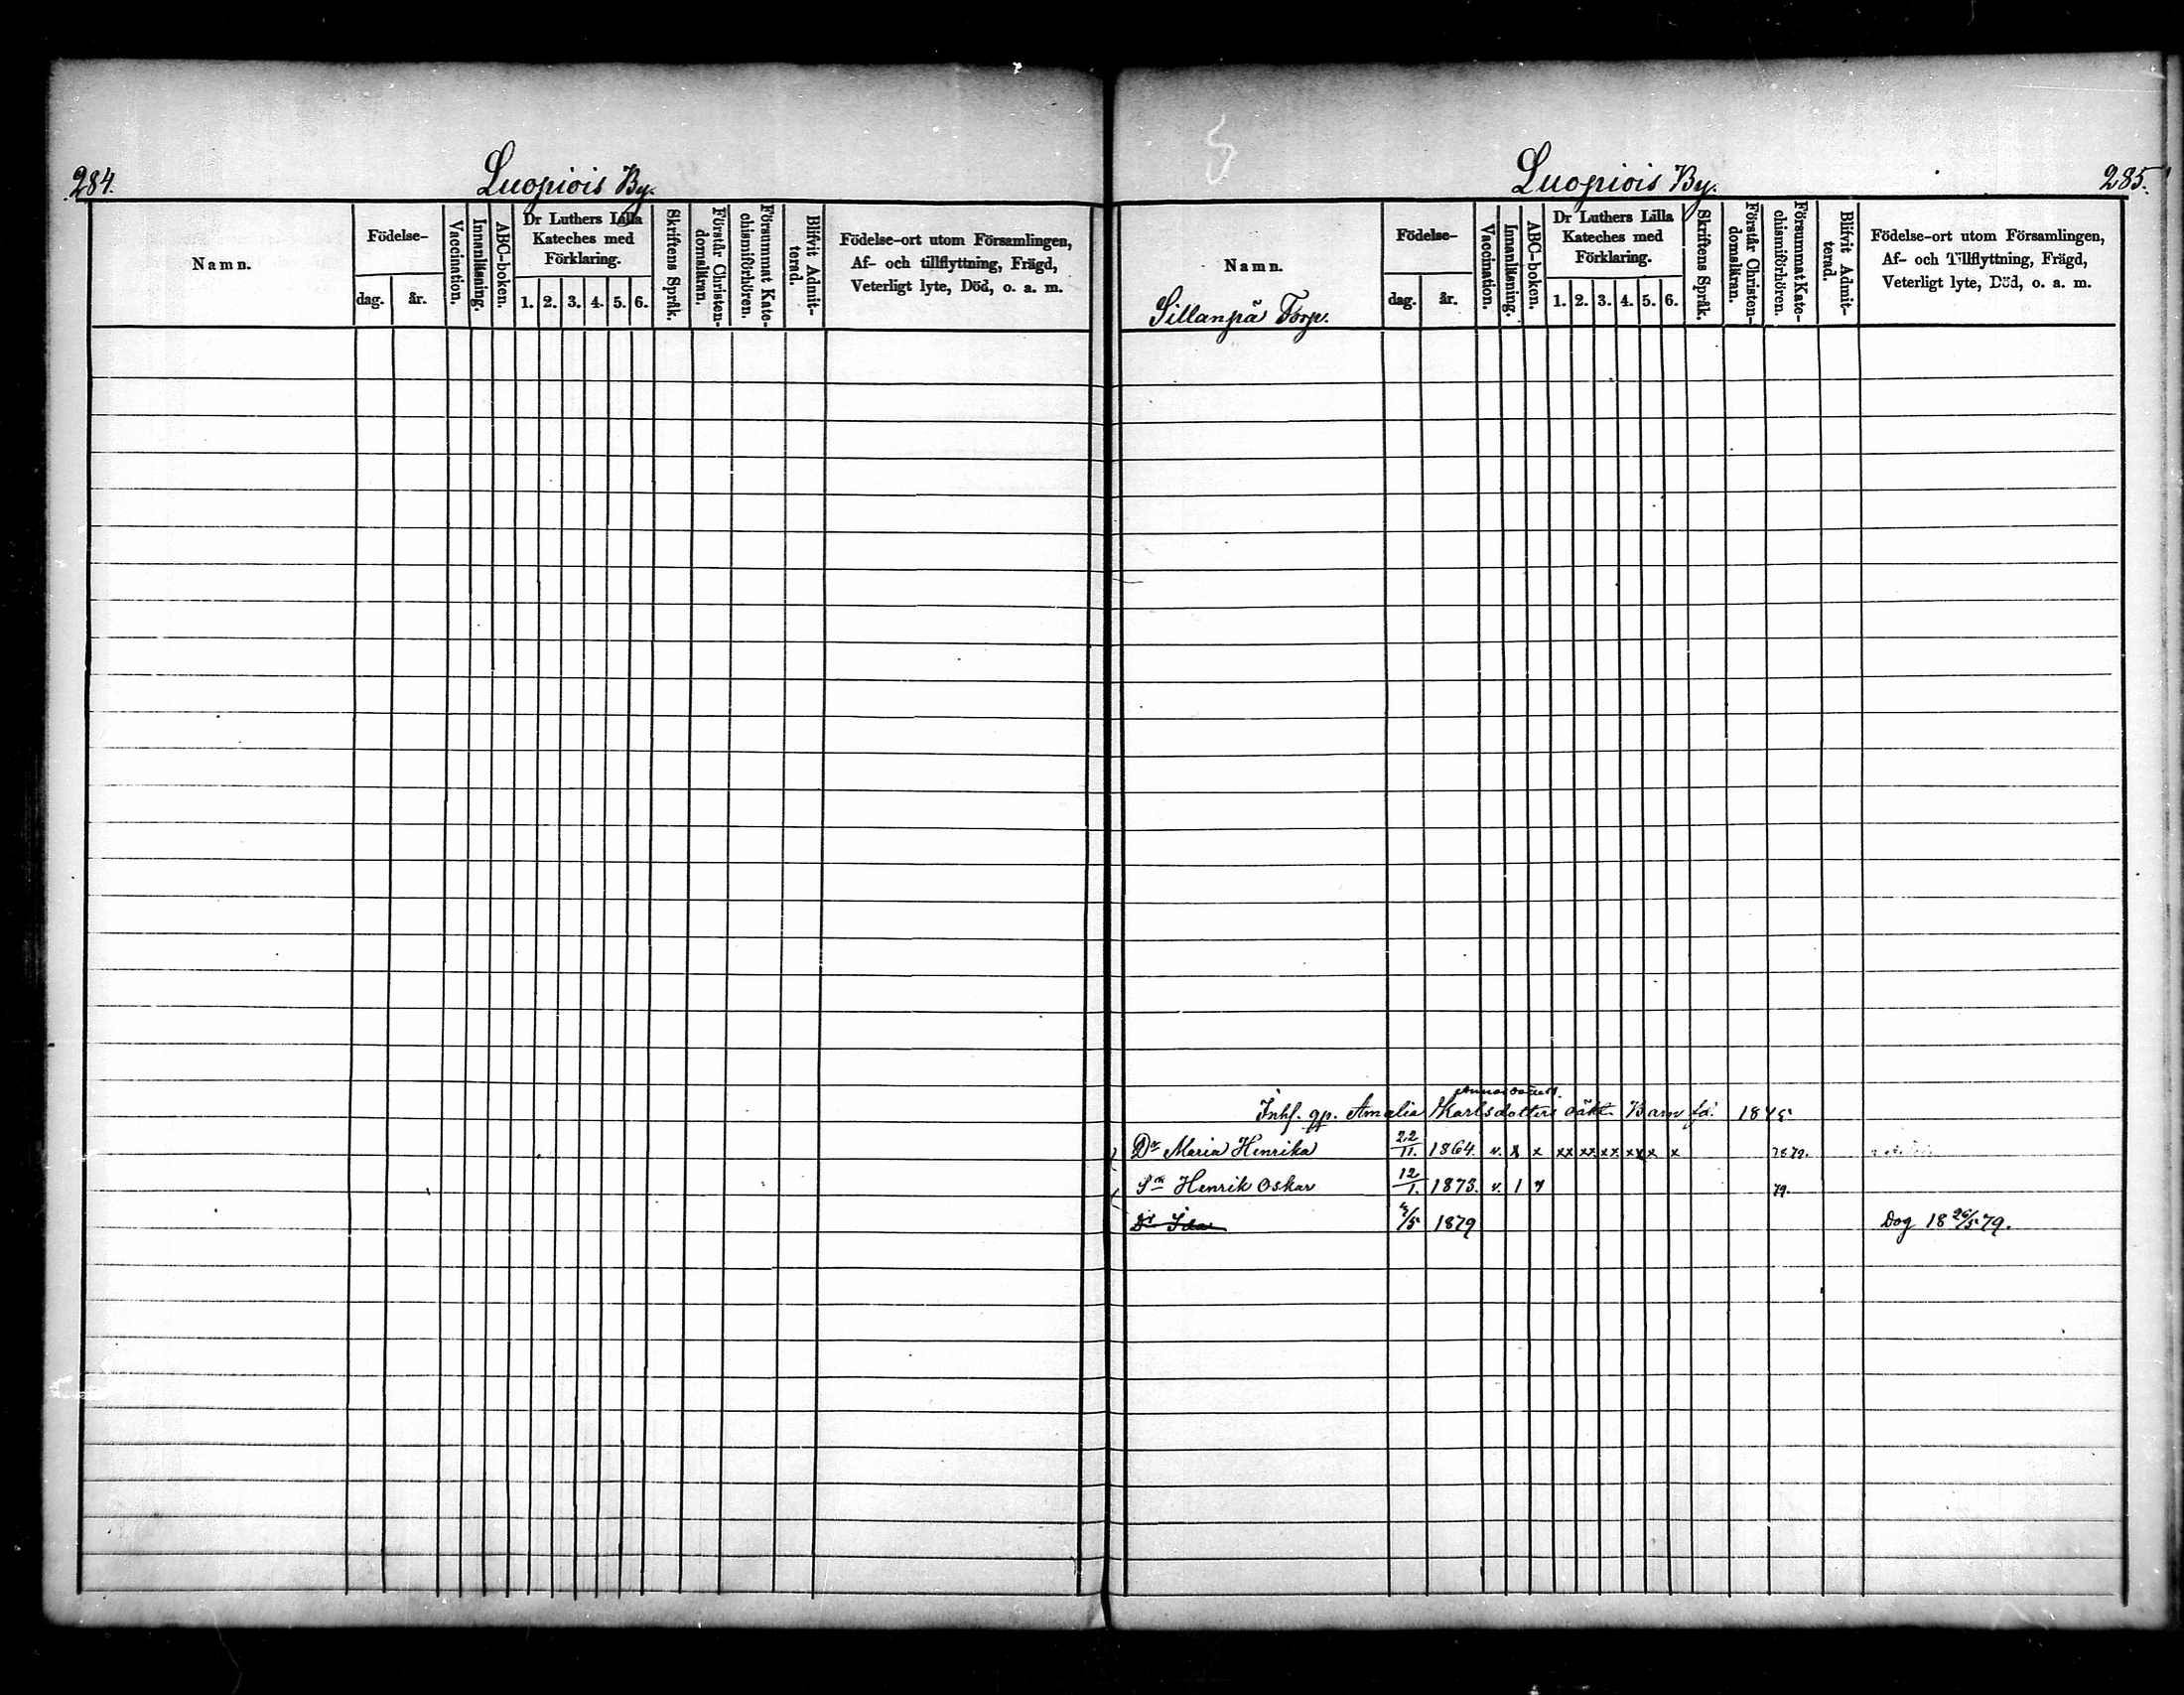 284.
Luopiois By.
Namn.
Födelse-
dag.
år.
Vaccination.
Innanläsning.
ABC-boken.
Dr Luthers Lilla
Kateches med
Förklaring.
1. 2. 3. 4. 5. 6.
Skriftens Språk.
Förstår Christen-
domsläran.
Försummat Kate-
chismiförhören.
Blifvit Admit-
terad.
Födelse-ort utom Församlingen,
Af- och tillflyttning, Frägd,
Veterligt lyte, Död, o. a. m.
Luopiois By.
285.
Namn.
Sillanpä Torp.
Födelse-
dag.
år.
Vaccination.
Innanläsning.
ABC-boken.
Dr Luthers Lilla
Kateches med
Förklaring.
1. 2. 3. 4. 5. 6.
Skriftens Språk.
Förstår Christen-
domsläran.
Försummat Kate-
chismiförhören.
Blifvit Admit-
terad.
Födelse-ort utom Församlingen,
Af- och Tillflyttning, Frägd,
Veterligt lyte, Död, o. a. m.
Inhs. qp. Amalia Karlsdotters oäkt. Barn fd. 1845
Dr Maria Henrika 22/11. 1864. v. x x xx xx xx xx x x 7879.
Sn Henrik Oskar 12/1. 1873. v. 1 79.
Dr Ida 4/5 1879 Dog 18 26/5 79.